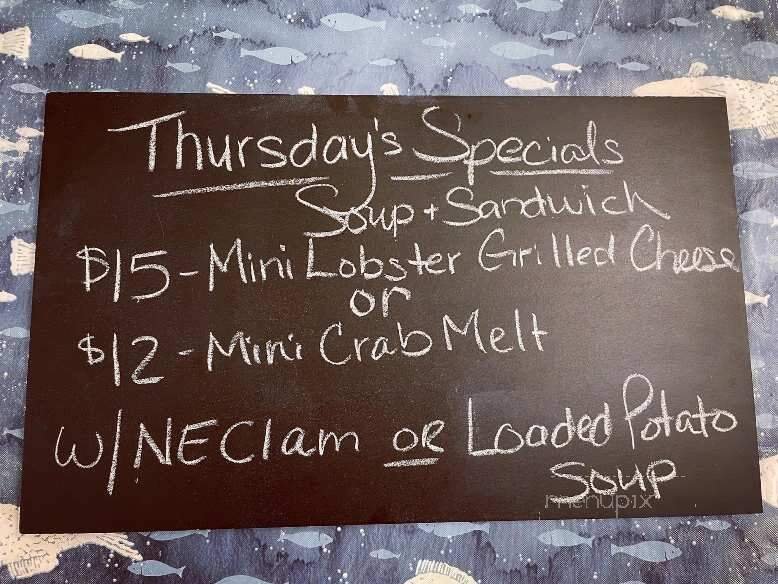 Thursday's Specials
Soup + Sandwich
$15 - Mini Lobster Grilled Cheese
or
$12 - Mini Crab Melt
w/NE Clam OR Loaded Potato
Soup
menupix